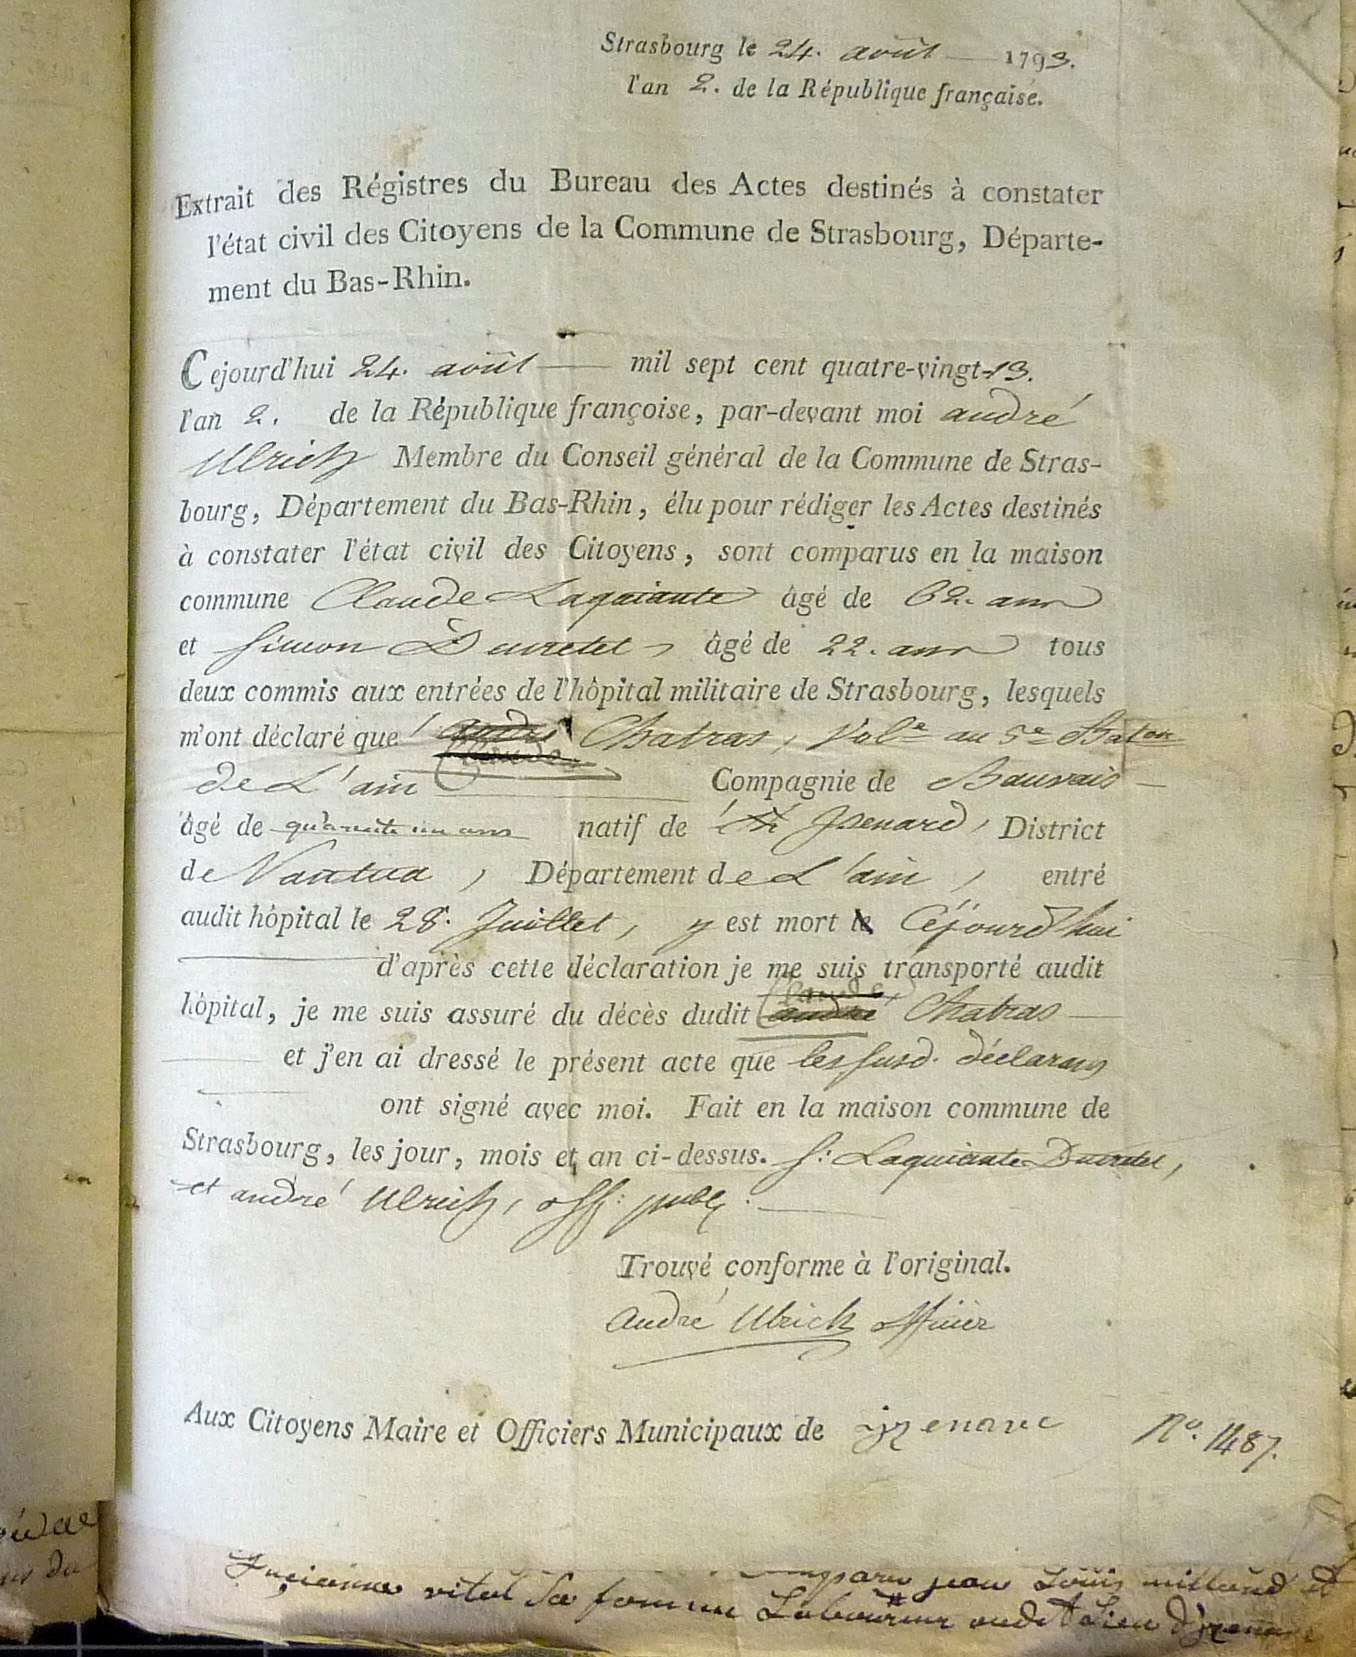 Strasbourg le 24. août 1793.
l'an 2. de la République française.
Extrait des Régistres du Bureau des Actes destinés à constater
l'état civil des Citoyens de la Commune de Strasbourg, Départe-
ment du Bas-Rhin.
Cejourd'hui 24. août mil sept cent quatre-vingt-13.
l'an 2. de la République françoise, par-devant moi andré
Ulrich Membre du Conseil général de la Commune de Stras-
bourg, Département du Bas-Rhin, élu pour rédiger les Actes destinés
à constater l'état civil des Citoyens, sont comparus en la maison
commune Claude Laquiante âgé de 62. ans
et Simon Duvretet, âgé de 22. ans tous
deux commis aux entrées de l'hôpital militaire de Strasbourg, lesquels
m'ont déclaré que andré Claude Chatras, Vol.re au 5.e Baton
de L'ain Compagnie de Bauvais
âgé de quarante un ans natif de Isenard, District
de Nantua, Département de L'ain, entré
audit hôpital le 28. Juillet, y est mort le Céjourd'hui
d'après cette déclaration je me suis transporté audit
hôpital, je me suis assuré du décès dudit Claude andré Chatras
et j'en ai dressé le présent acte que les susd. déclarans
ont signé avec moi. Fait en la maison commune de
Strasbourg, les jour, mois et an ci-dessus. S: Laquiante Duvretet,
et andré Ulrich, off: publ.
Trouvé conforme à l'original.
André Ulrich officier
Aux Citoyens Maire et Officiers Municipaux de izenave No. 1487.
jean Louis milland et
vital Sa femme Laboureur audit Lieu d'izenave